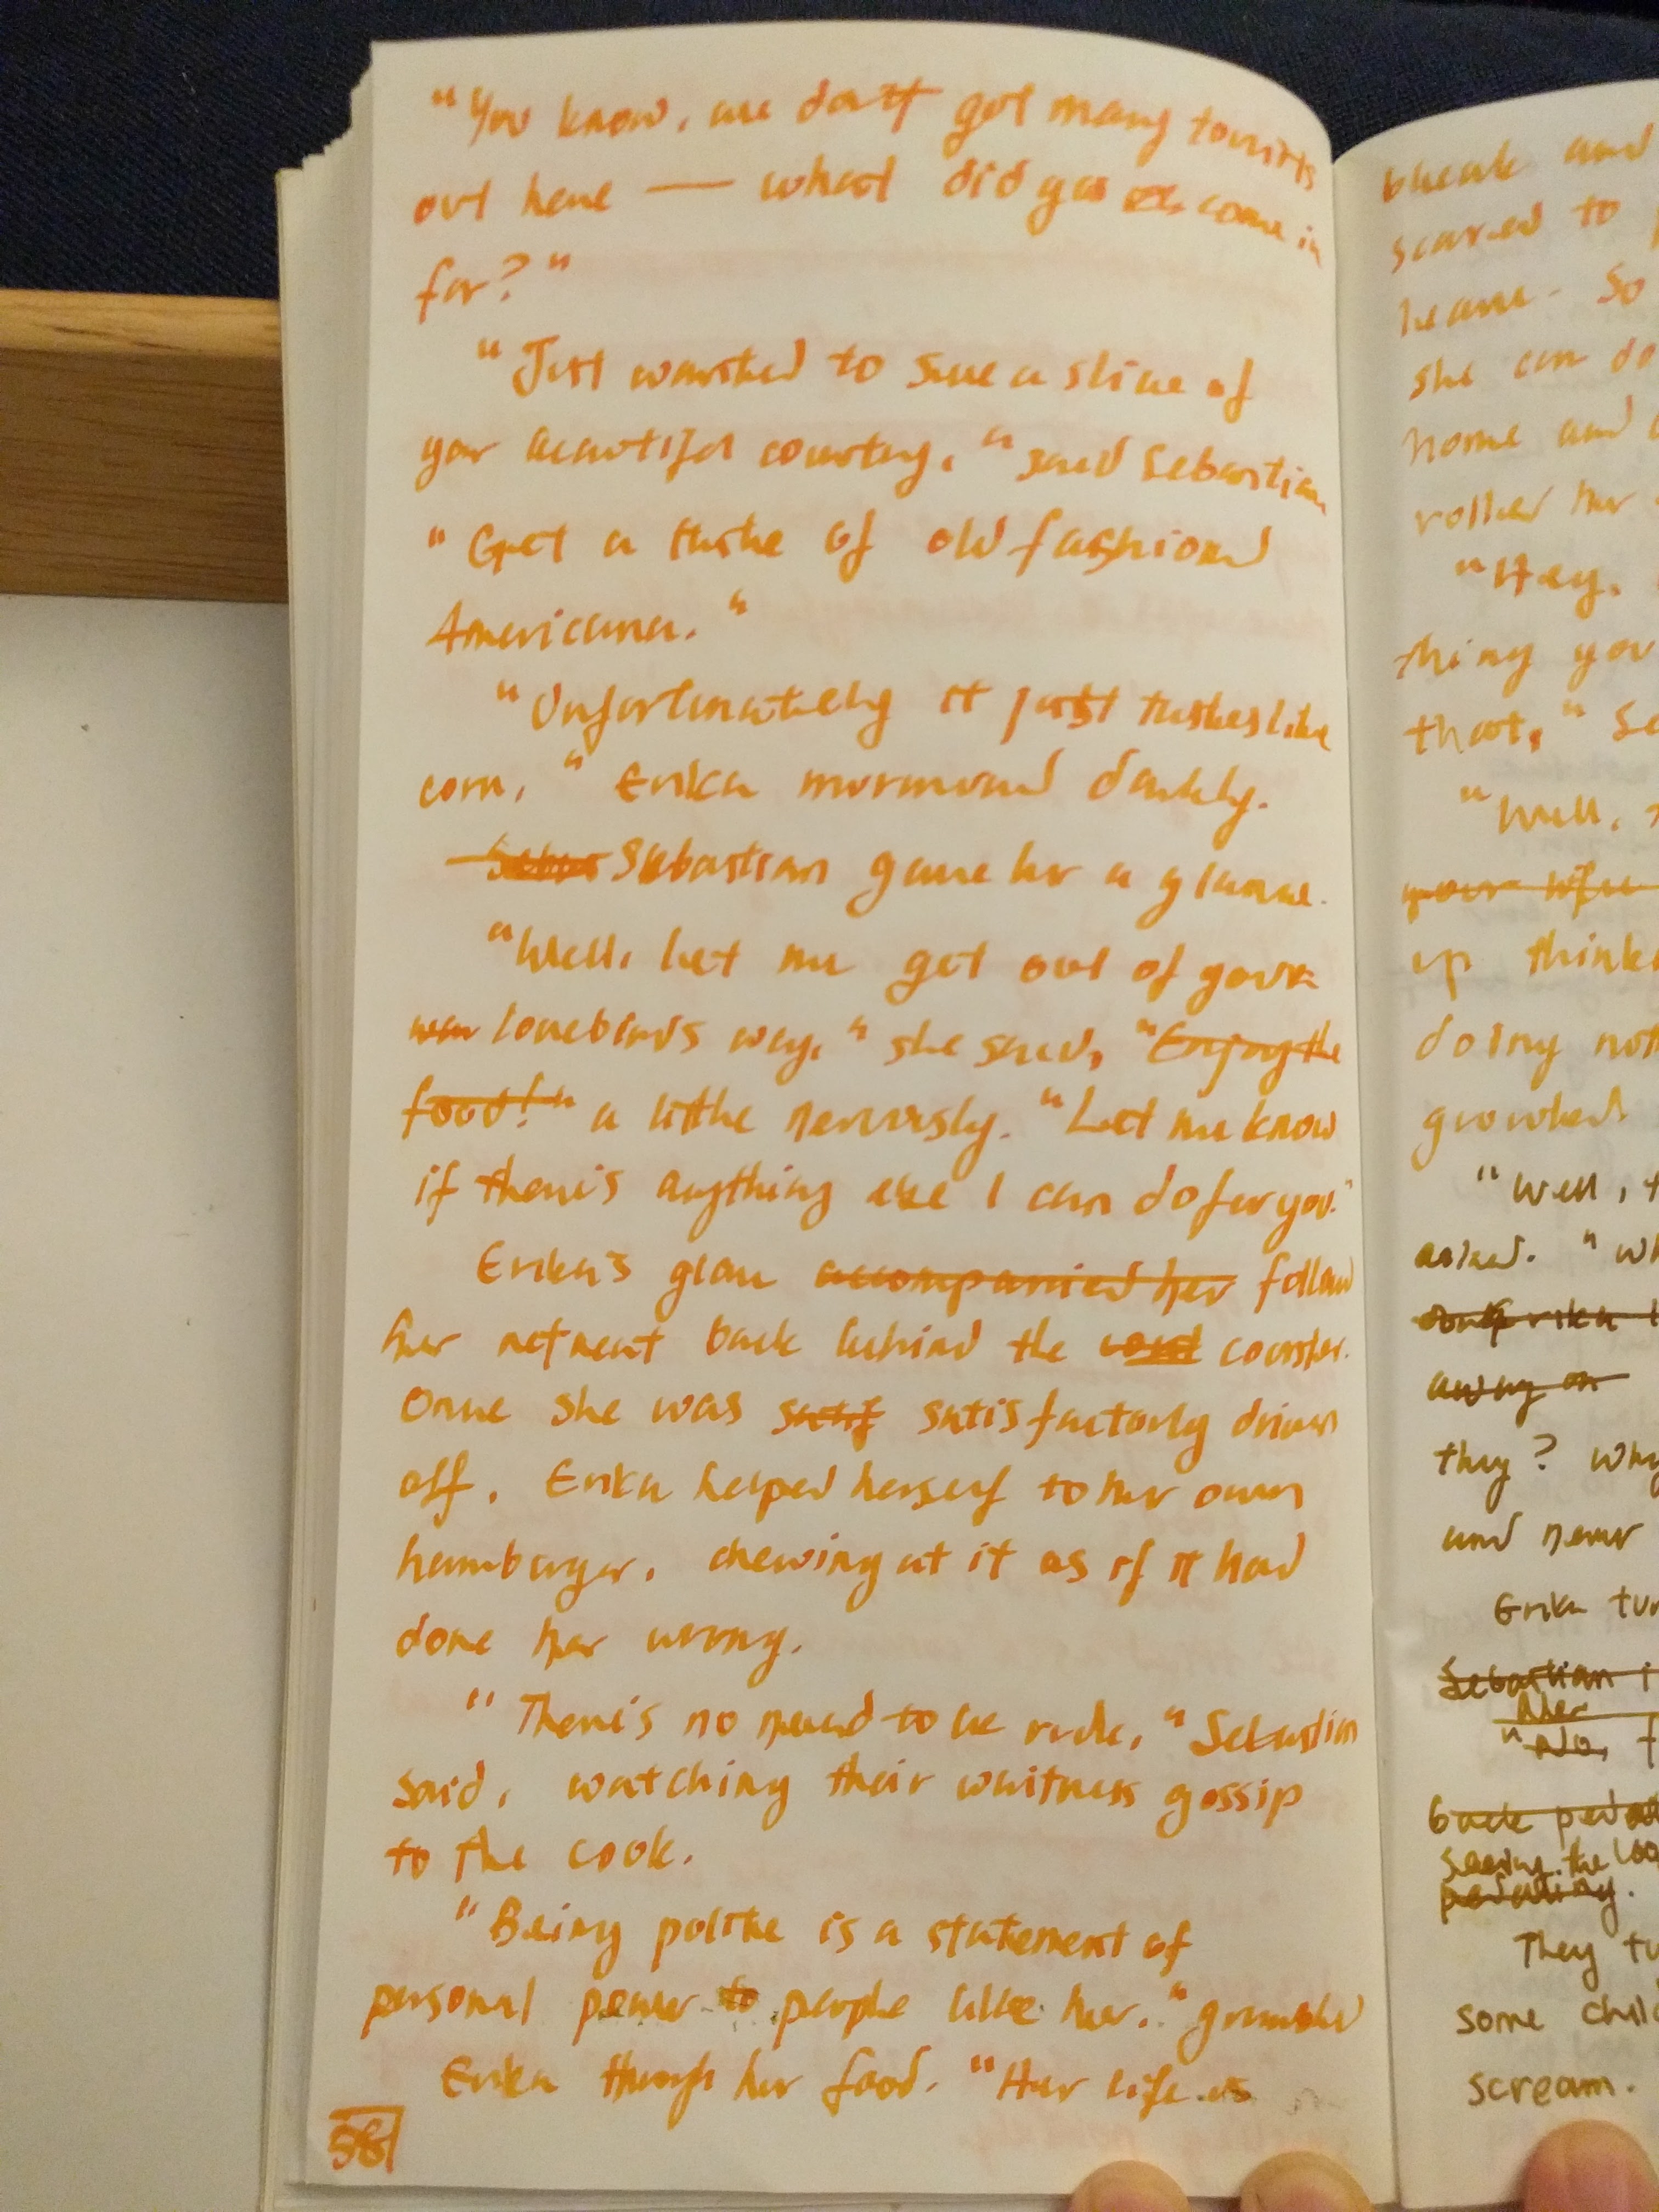 "You know, we don't get many tourists
out here — what did you come in
for?"
"Just wanted to see a slice of
your beautiful country," said Sebastian
"Get a taste of old fashioned
Americana."
"Unfortunately it just tastes like
corn," Erika murmured darkly.
Sebastian gave her a glance.
"Well, let me get out of your
lovebirds way," she said, "Enjoy the
food!" a little nervously. "Let me know
if there's anything else I can do for you."
Erika's glare accompanied her followed
her retreat back behind the counter.
Once she was satisfactorily driven
off, Erika helped herself to her own
hamburger, chewing at it as if it had
done her wrong.
"There's no need to be rude," Sebastian
said, watching their waitress gossip
to the cook.
"Being polite is a statement of
personal power to people like her." grumbled
Erika through her food. "Her life is
58
bleak and
scared to
leave. So
she can do
home and
rolled her
"Hey,
thing you
that," Se
"Well,
up think
doing not
growled.
"Well, t
asked. "Wh
away on
they? Why
and never
Erika tur
Sebastian i
"No, f
seeing the loo
They tu
some chil
scream.